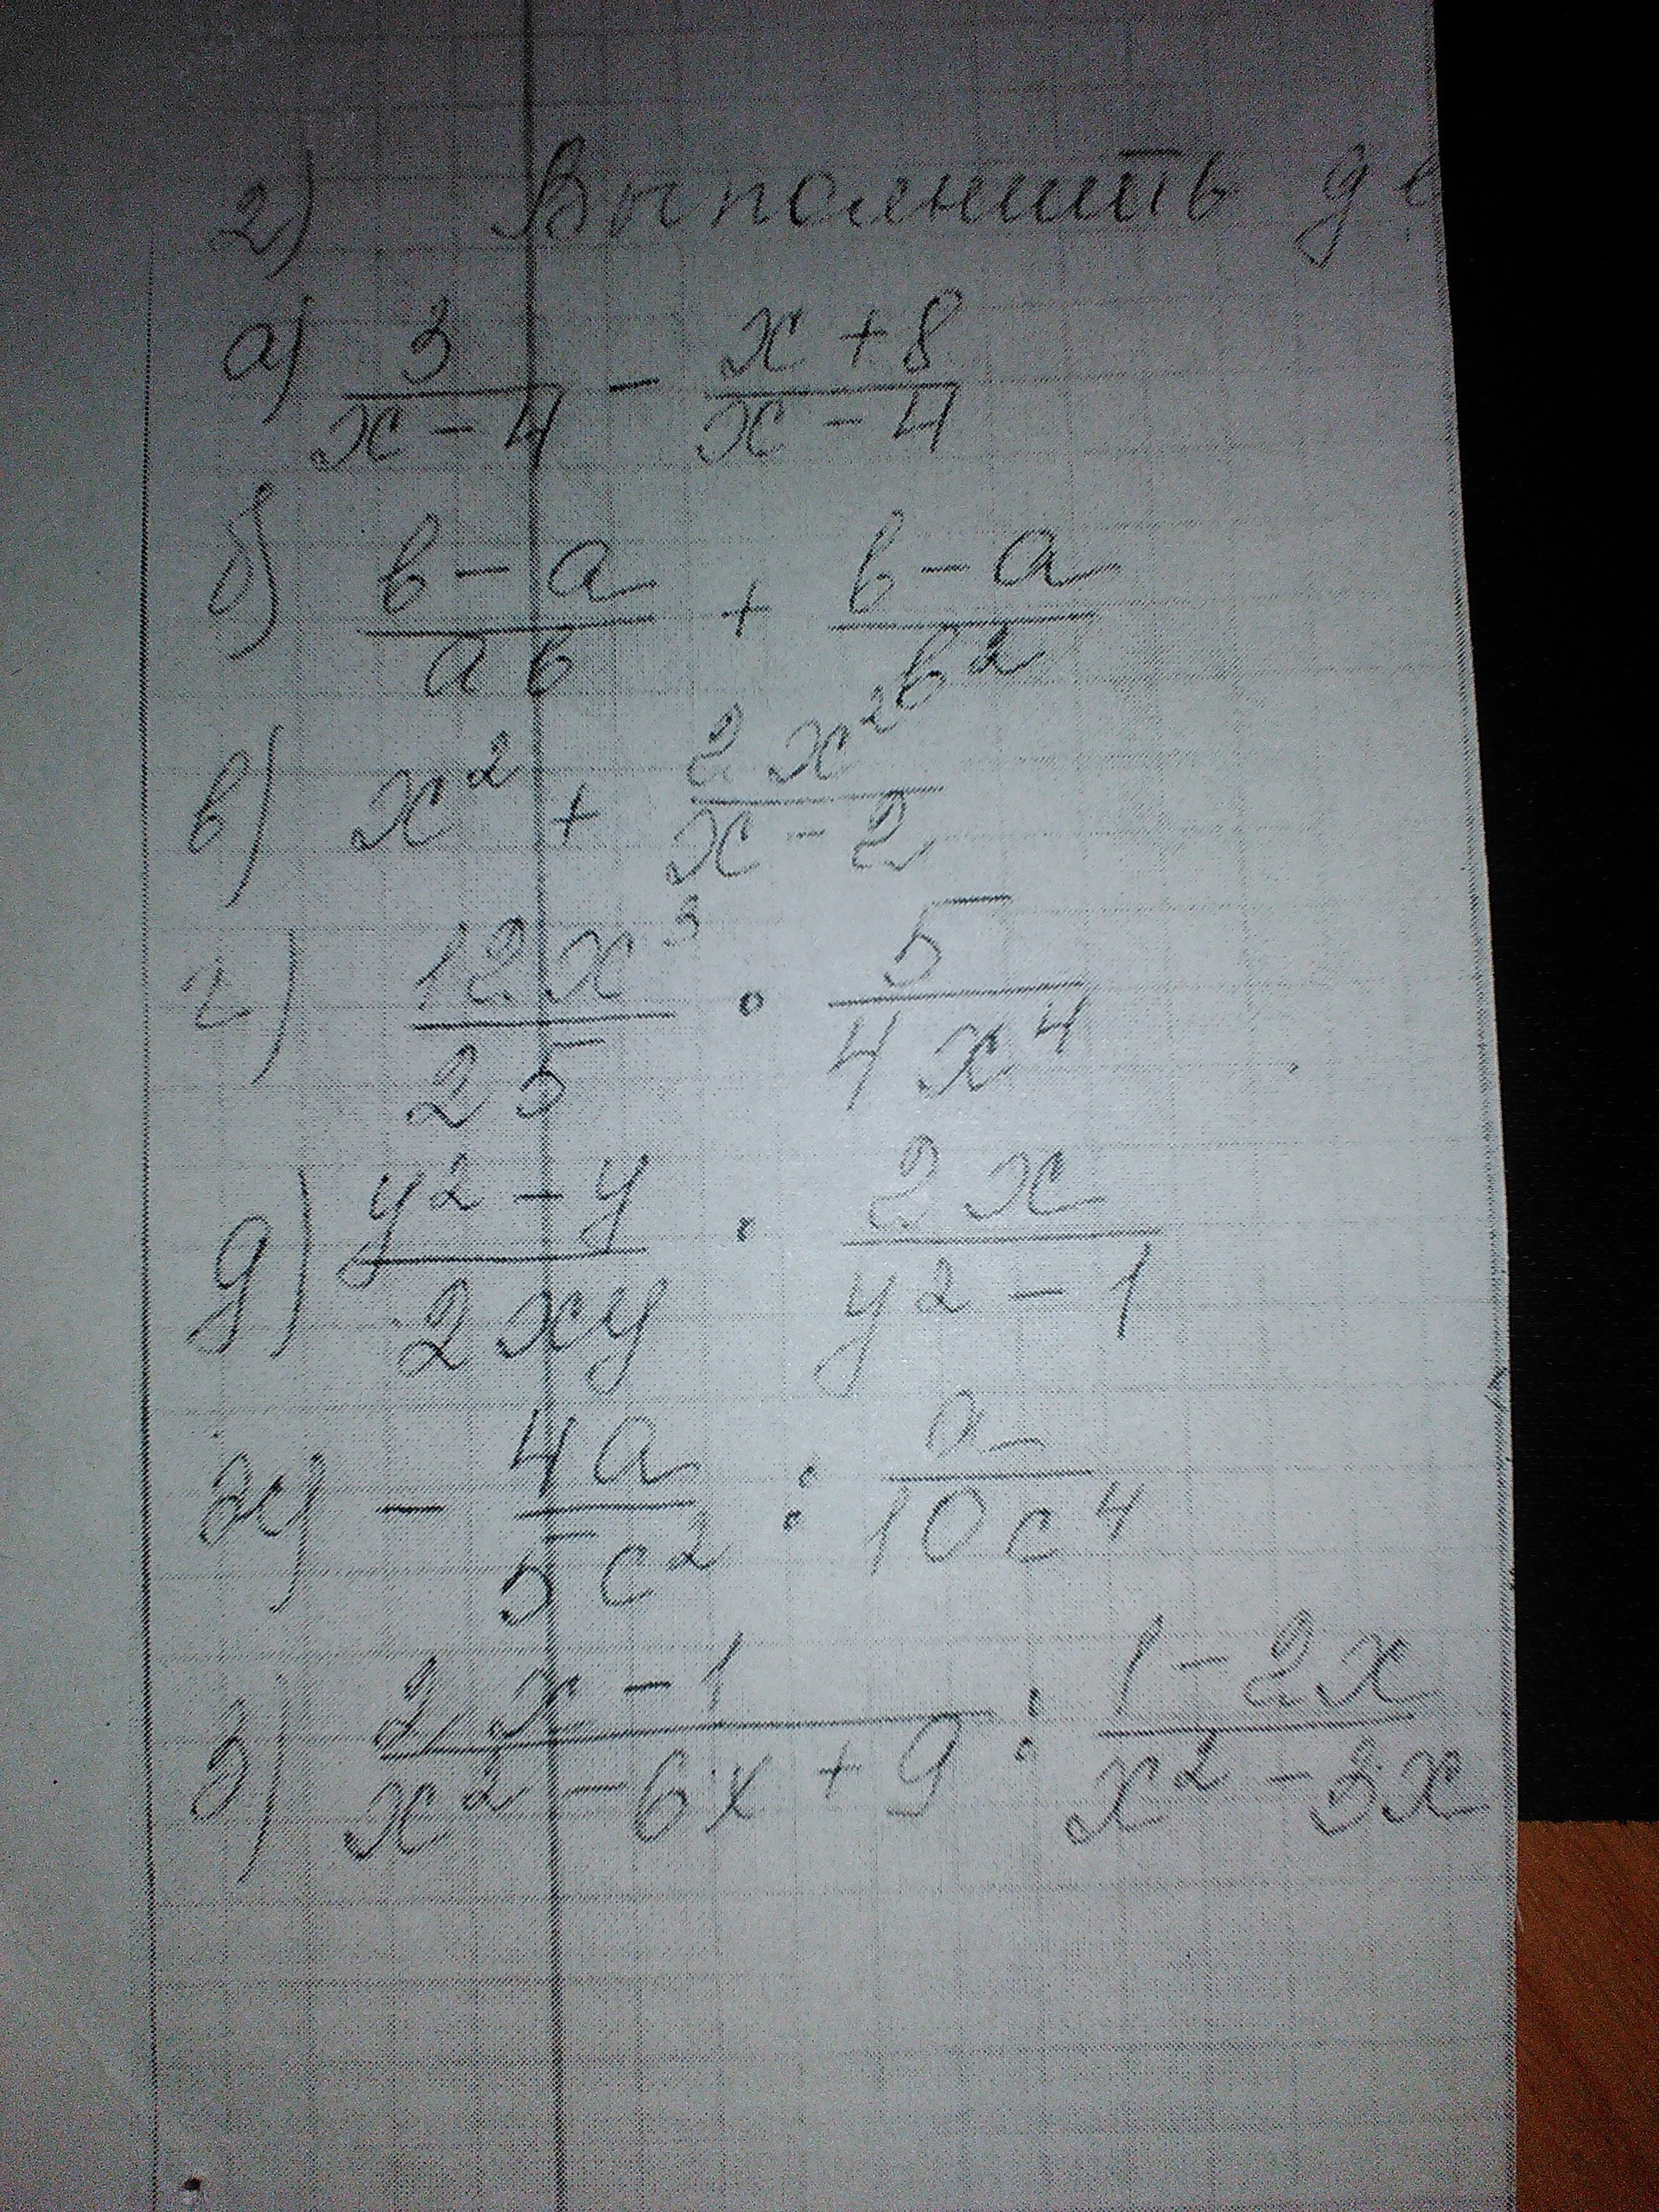 2) Выполнить де
а) 3/(x-4) - (x+8)/(x-4)
б) (b-a)/(ab) + (b-a)/b²
в) x² + 2x²/(x-2)
г) 12x³/25 · 5/(4x⁴)
д) (y²-y)/(2xy) · 2x/(y²-1)
ж) - 4a/(5c²) : a/(10c⁴)
з) (2x-1)/(x²-6x+9) : (1-2x)/(x²-3x)